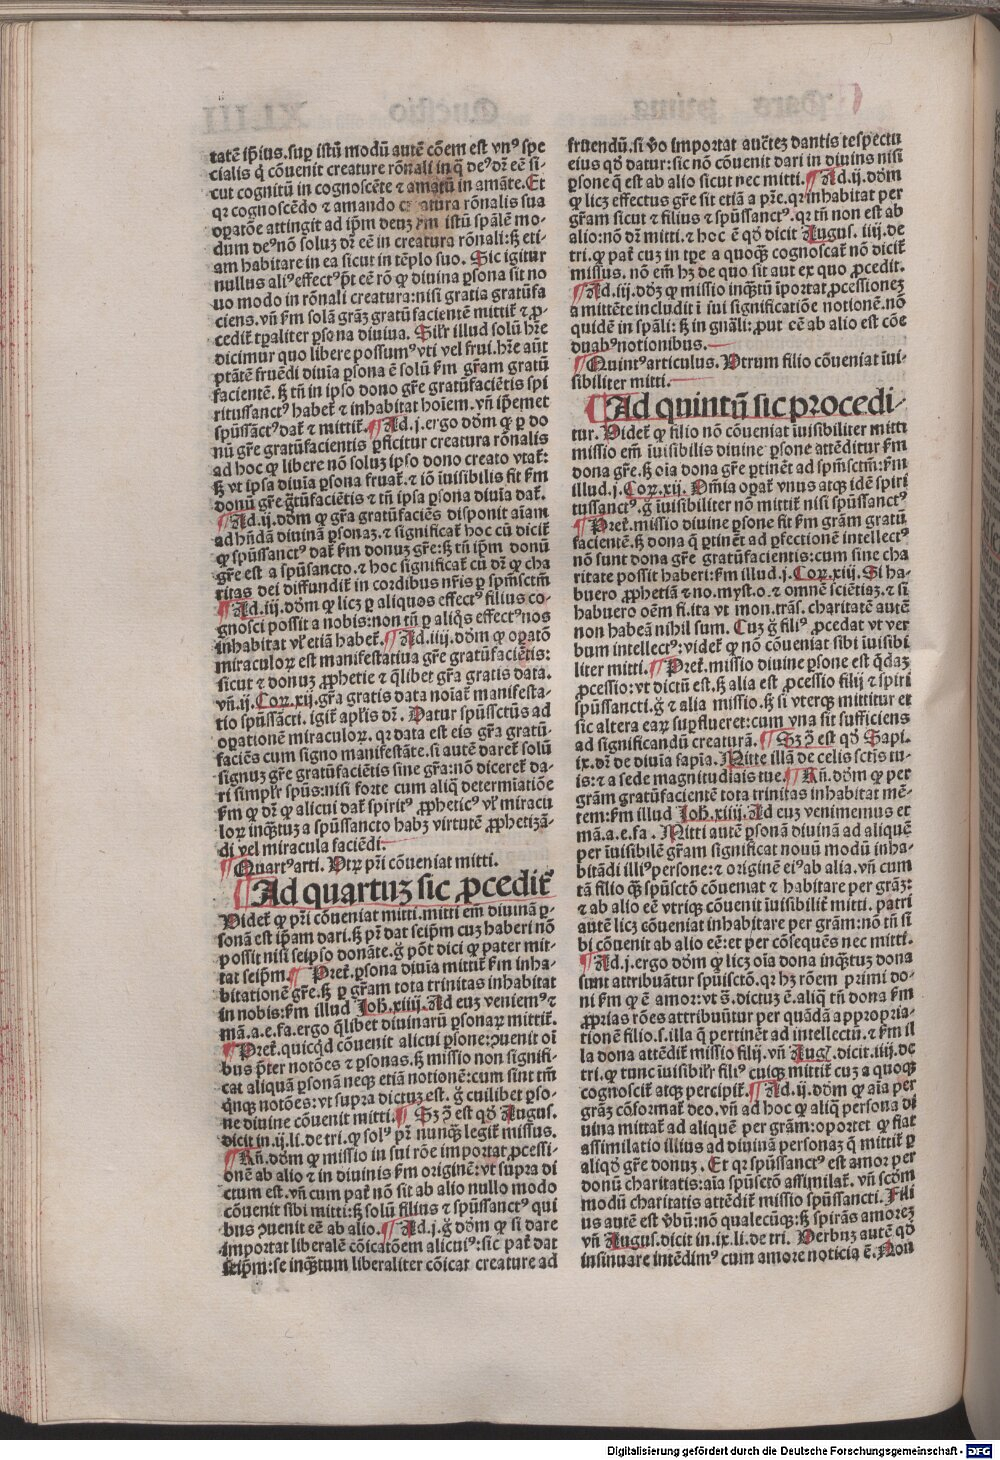 tatē ip̄ius.sup̱ istū modū autē cōem est vnꝰ spe
cialis q̄ cōuenit creature rōnali in q̄ deꝰ dr̄ eē si-
cut cognitū in cognoscēte ⁊ amatū in amāte.Et
qꝛ cognoscēdo ⁊ amando creatura rōnalis sua
op̱atōe attingit ad ip̄m deuꝫ ẜm istū sp̄alē mo-
dum deꝰ nō soluꝫ dr̄ eē in creatura rōnali:ſꝫ eti-
am habitare in ea sicut in tēplo suo. Sic igitur
nullus aliꝰ effectꝰ p̄t eē rō ꝙ diuina p̱sona sit no
uo modo in rōnali creatura:nisi gratia gratūfa
ciens.vn̄ ẜm solā grāꝫ gratū facientē mittit̄ ⁊ ꝓ-
cedit̄ tp̱aliter p̱sona diuiua. Silr̄ illud solū hr̄e
dicimur quo libere possumꝰ vti vel frui.hr̄e aūt
ptātē fruēdi diuīa p̱sona ē solū ẜm gr̄am gratū
facientē. ſꝫ tn̄ in ipso dono gr̄e gratūfaciētis spi
ritussanctꝰ habet̄ ⁊ inhabitat hoīem.vn̄ ip̄emet
spūssāctꝰ dat̄ ⁊ mittit̄.¶Ad.j.ergo dōm ꝙ p̱ do
nū gr̄e gratūfacientis p̱ficitur creatura rōnalis
ad hoc ꝙ libere nō soluꝫ ipso dono creato vtat̄:
ſꝫ vt ipsa diuīa p̱sona fruat̄.⁊ iō īuisibilis fit ẜm
donū gr̄e gr̄tūfaciētis ⁊ tn̄ ipsa p̱sona diuīa dat̄.
¶Ad.ij.dōm ꝙ gr̄a gratūfaciēs disponit aīam
ad hn̄dā diuinā p̱sonaꝫ.⁊ significat̄ hoc cū dicit̄
ꝙ spūssanctꝰ dat̄ ẜm donuꝫ gr̄e:ſꝫ tn̄ ip̄m donū
gr̄e est a spūsancto.⁊ hoc significat̄ cū dr̄ ꝙ cha
ritas dei diffundit̄ in cordibus nr̄is p̱ sp̄msctm̄
¶Ad.iij.dōm ꝙ licꝫ p̱ aliquos effectꝰ filius co-
gnosci possit a nobis:non tn̄ p̱ aliq̄s effectꝰ nos
inhabitat vl̓ etiā habet̄.¶Ad.iiij.dōm ꝙ op̱atō
miraculoꝝ est manifestatiua gr̄e gratūfaciētis:
sicut ⁊ donuꝫ ꝓphetie ⁊ q̄libet gr̄a gratis data.
vn̄.ij.Coꝝ.xij.gr̄a gratis data noīat̄ manifesta-
tio spūssācti.igit̄ apl̓is dr̄. Datur spūssctūs ad
op̱ationē miraculoꝝ.qꝛ data est eis gr̄a gratū-
faciēs cum signo manifestāte.si autē daret̄ solū
signuꝫ gr̄e gratūfaciētis sine gr̄a:nō diceret̄ da-
ri simplr̄ spūs:nisi forte cum aliq̄ determīatiōe
ẜm ꝙ dr̄ ꝙ alicui dat̄ spiritꝰ ꝓpheticꝰ vl̓ miracu
loꝝ inqꝫtuꝫ a spūssancto habꝫ virtutē ꝓphetizā-
di vel miracula faciēdi.
¶Quartꝰ arti. Vtꝝ pr̄i cōueniat mitti.
¶Ad quartuꝫ sic ꝓcedit̄
Videt̄ ꝙ pr̄i cōueniat mitti.mitti em̄ diuinā p̱-
sonā est ip̄am dari.ſꝫ pr̄ dat seip̄m cuꝫ haberi nō
possit nisi seipso donāte.g̊ pōt dici ꝙ pater mit-
tat seip̄m.¶Pret̄.p̱sona diuīa mittit̄ ẜm inha-
bitationē gr̄e.ſꝫ p̱ gr̄am tota trinitas inhabitat
in nobis:ẜm illud Joh̄.xiiij.Ad euꝫ veniemꝰ ⁊
mā.a.e.fa.ergo q̄libet diuinarū p̱sonaꝝ mittit̄.
¶Pret̄.quicqd̄ cōuenit alicui p̱sone:ꝯuenit oī
bus p̄ter notōes ⁊ p̱sonas.ſꝫ missio non signifi-
cat aliquā p̱sonā neqꝫ etiā notionē:cum sint tm̄
q̄nqꝫ notōes:vt supra dictuꝫ est. g̊ cuilibet p̱so-
ne diuine cōuenit mitti.¶Sꝫ ꝯ est qd̄ Augus.
dicit in.ij.li.de tri.ꝙ solꝰ pr̄ nunqꝫ̄ legit̄ missus.
¶Rn̄.dōm ꝙ missio in sui rōe importat ꝓcessi-
onē ab alio ⁊ in diuinis ẜm originē:vt supra di
ctum est.vn̄ cum pat̄ nō sit ab alio nullo modo
cōuenit sibi mitti:ſꝫ solū filius ⁊ spūssanctꝰ qui
bus ꝯuenit eē ab alio.¶Ad.j.g̊ dōm ꝙ si dare
importat liberalē cōicatōem alicuiꝰ:sic pat̄ dat
seip̄m:se inqꝫtum liberaliter cōicat creature ad
fruendū.si ꝟo importat auctēꝫ dantis respectu
eius qd̄ datur:sic nō cōuenit dari in diuinis nisi
p̱sone q̄ est ab alio sicut nec mitti.¶Ad.ij.dōm
ꝙ licꝫ effectus gr̄e sit etiā a pr̄e.qꝛ inhabitat per
gr̄am sicut ⁊ filius ⁊ spūssanctꝰ.qꝛ tn̄ non est ab
alio:nō dr̄ mitti.⁊ hoc ē qd̄ dicit Augus. iiij.de
tri.ꝙ pat̄ cuꝫ in tp̱e a quoqꝫ̄ cognoscat̄ nō dicit̄
missus. nō em̄ hꝫ de quo sit aut ex quo ꝓcedit.
¶Ad.iij.dōꝫ ꝙ missio inqꝫtū īportat ꝓcessioneꝫ
a mittēte includit ī sui significatiōe notionē.nō
quidē in sp̄ali: ſꝫ in gnāli:ꝓut eē ab alio est cōe
duabꝰ notionibus.
¶Quintꝰ articulus. Vtrum filio cōueniat īui-
sibiliter mitti.
¶Ad quintū sic procedi-
tur. Videt̄ ꝙ filio nō cōueniat īuisibiliter mitti
missio em̄ īuisibilis diuine p̱sone attēditur ẜm
dona gr̄e.ſꝫ oīa dona gr̄e p̱tinēt ad sp̄msctm̄:ẜm
illud.j.Coꝝ.xij. Om̄ia op̱at̄ vnus atqꝫ idē spiri
tussanctꝰ.g̊ īuisibiliter nō mittit̄ nisi spūssanctꝰ
¶Pret̄.missio diuine p̱sone fit ẜm grām gratū
facientē.ſꝫ dona q̄ p̱tinēt ad p̱fectionē intellectꝰ
nō sunt dona gr̄e gratūfacientis:cum sine cha
ritate possit haberi:ẜm illud.j.Coꝝ.xiij. Si ha-
buero ꝓphetiā ⁊ no.myst.o.⁊ omnē sciētiaꝫ.⁊ si
habuero oēm fi.ita vt mon.trās. charitatē autē
non habeā nihil sum. Cuꝫ g̊ filiꝰ ꝓcedat vt ver
bum intellectꝰ:videt̄ ꝙ nō cōueniat sibi īuisibi
liter mitti.¶Pret̄.missio diuine p̱sone est q̄daꝫ
ꝓcessio:vt dictū est.ſꝫ alia est ꝓcessio filij ⁊ spiri
spūssancti.g̊ ⁊ alia missio.ſꝫ si vterqꝫ mittitur et
sic altera eaꝝ suꝑflueret:cum vna sit sufficiens
ad significandū creaturā.¶Sꝫ ꝯ est qd̄ Sapi.
ix.dr̄ de diuīa sapīa.Mitte illā de celis sctīs tu-
is:⁊ a sede magnitudīais tue.¶Rn̄.dōm ꝙ per
grām gratūfacientē tota trinitas inhabitat mē-
tem:ẜm illud Joh̄.xiiij.Ad euꝫ venimemus et
mā.a.e.fa. Mitti autē p̱sonā diuinā ad aliquē
per īuisibilē gr̄am significat nouū modū inha-
bitādi illiꝰ persone:⁊ originē eiꝰ ab alia.vn̄ cum
tā filio qꝫ̄ spūsctō cōueniat ⁊ habitare per grāꝫ:
⁊ ab alio eē vtriqꝫ cōuenit īuisibilit̄ mitti. patri
autē licꝫ cōueniat inhabitare per grām:nō tn̄ si
bi cōuenit ab alio eē:et per cōsequēs nec mitti.
¶Ad.j.ergo dōm ꝙ licꝫ oīa dona inqꝫtuꝫ dona
sunt attribuātur spūisctō.qꝛ hꝫ rōem primi do-
ni ẜm ꝙ ē amor:vt s̄.dictuꝫ ē.aliq̄ tn̄ dona ẜm
ꝓprias rōes attribuūtur per quādā appropria-
tionē filio.s.illa q̄ pertinēt ad intellectū.⁊ ẜm il
la dona attēdit̄ missio filij.vn̄ Augꝰ.dicit.iiij.de
tri.ꝙ tunc īuisibilr̄ filiꝰ cuiqꝫ mittit̄ cuꝫ a quoqꝫ
cognoscit̄ atqꝫ percipit̄.¶Ad.ij.dōm ꝙ aīa per
grāꝫ cōformat̄ deo.vn̄ ad hoc ꝙ aliq̄ persona di
uina mittat̄ ad aliquē per grām:oportet ꝙ fiat
assimilatio illius ad diuinā personaꝫ q̄ mittit̄ p̱
aliqd̄ gr̄e donuꝫ. Et qꝛ spūssanctꝰ est amor per
donū charitatis:aīa spūsctō assimilat̄. vn̄ scd̄m
modū charitatis attēdit̄ missio spūssancti. Fili
us autē est ꝟbū:nō qualecūqꝫ:ſꝫ spirās amoreꝫ
vn̄ Augus.dicit in.ix.li.de tri. Verbuꝫ autē qd̄
insinuare intēdimꝰ cum amore noticia ē. Non
Digitalisierung gefördert durch die Deutsche Forschungsgemeinschaft - DFG